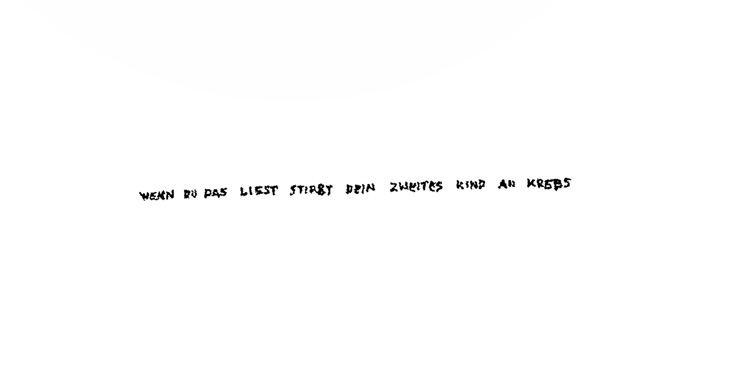 WENN DU DAS LIEST STIRBT DEIN ZWEITES KIND AN KREBS